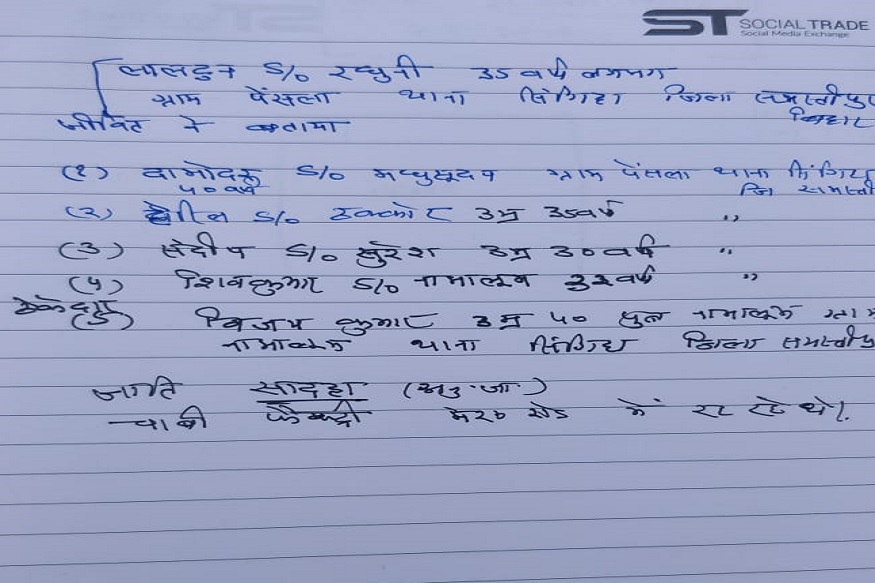 ST SOCIAL TRADE
Social Media Exchange
लालटुन S/o रघुनी 35 वर्ष लगभग
ग्राम पेंसला थाना सिंगिहा जिला समस्तीपुर
बिहार
जीवित ने बताया
(१) दामोदर S/o मधुसूदन ग्राम पेंसला थाना सिंगिया
५० वर्ष जि समस्ती
(२) S/o उम्र 35 वर्ष ,,
(३) संदीप S/o सुरेश उम्र 30 वर्ष ,,
(५) शिवकुमार S/o नामालूम 32 वर्ष ,,
ठेकेदार
(5) विजय कुमार उम्र ५० पुत्र नामालूम ग्राम
नामालूम थाना सिंगिया जिला समस्तीपु
जाति सादहा (अनु. जा.)
चाबी फैक्ट्री मेरठ रोड में रह रहे थे।